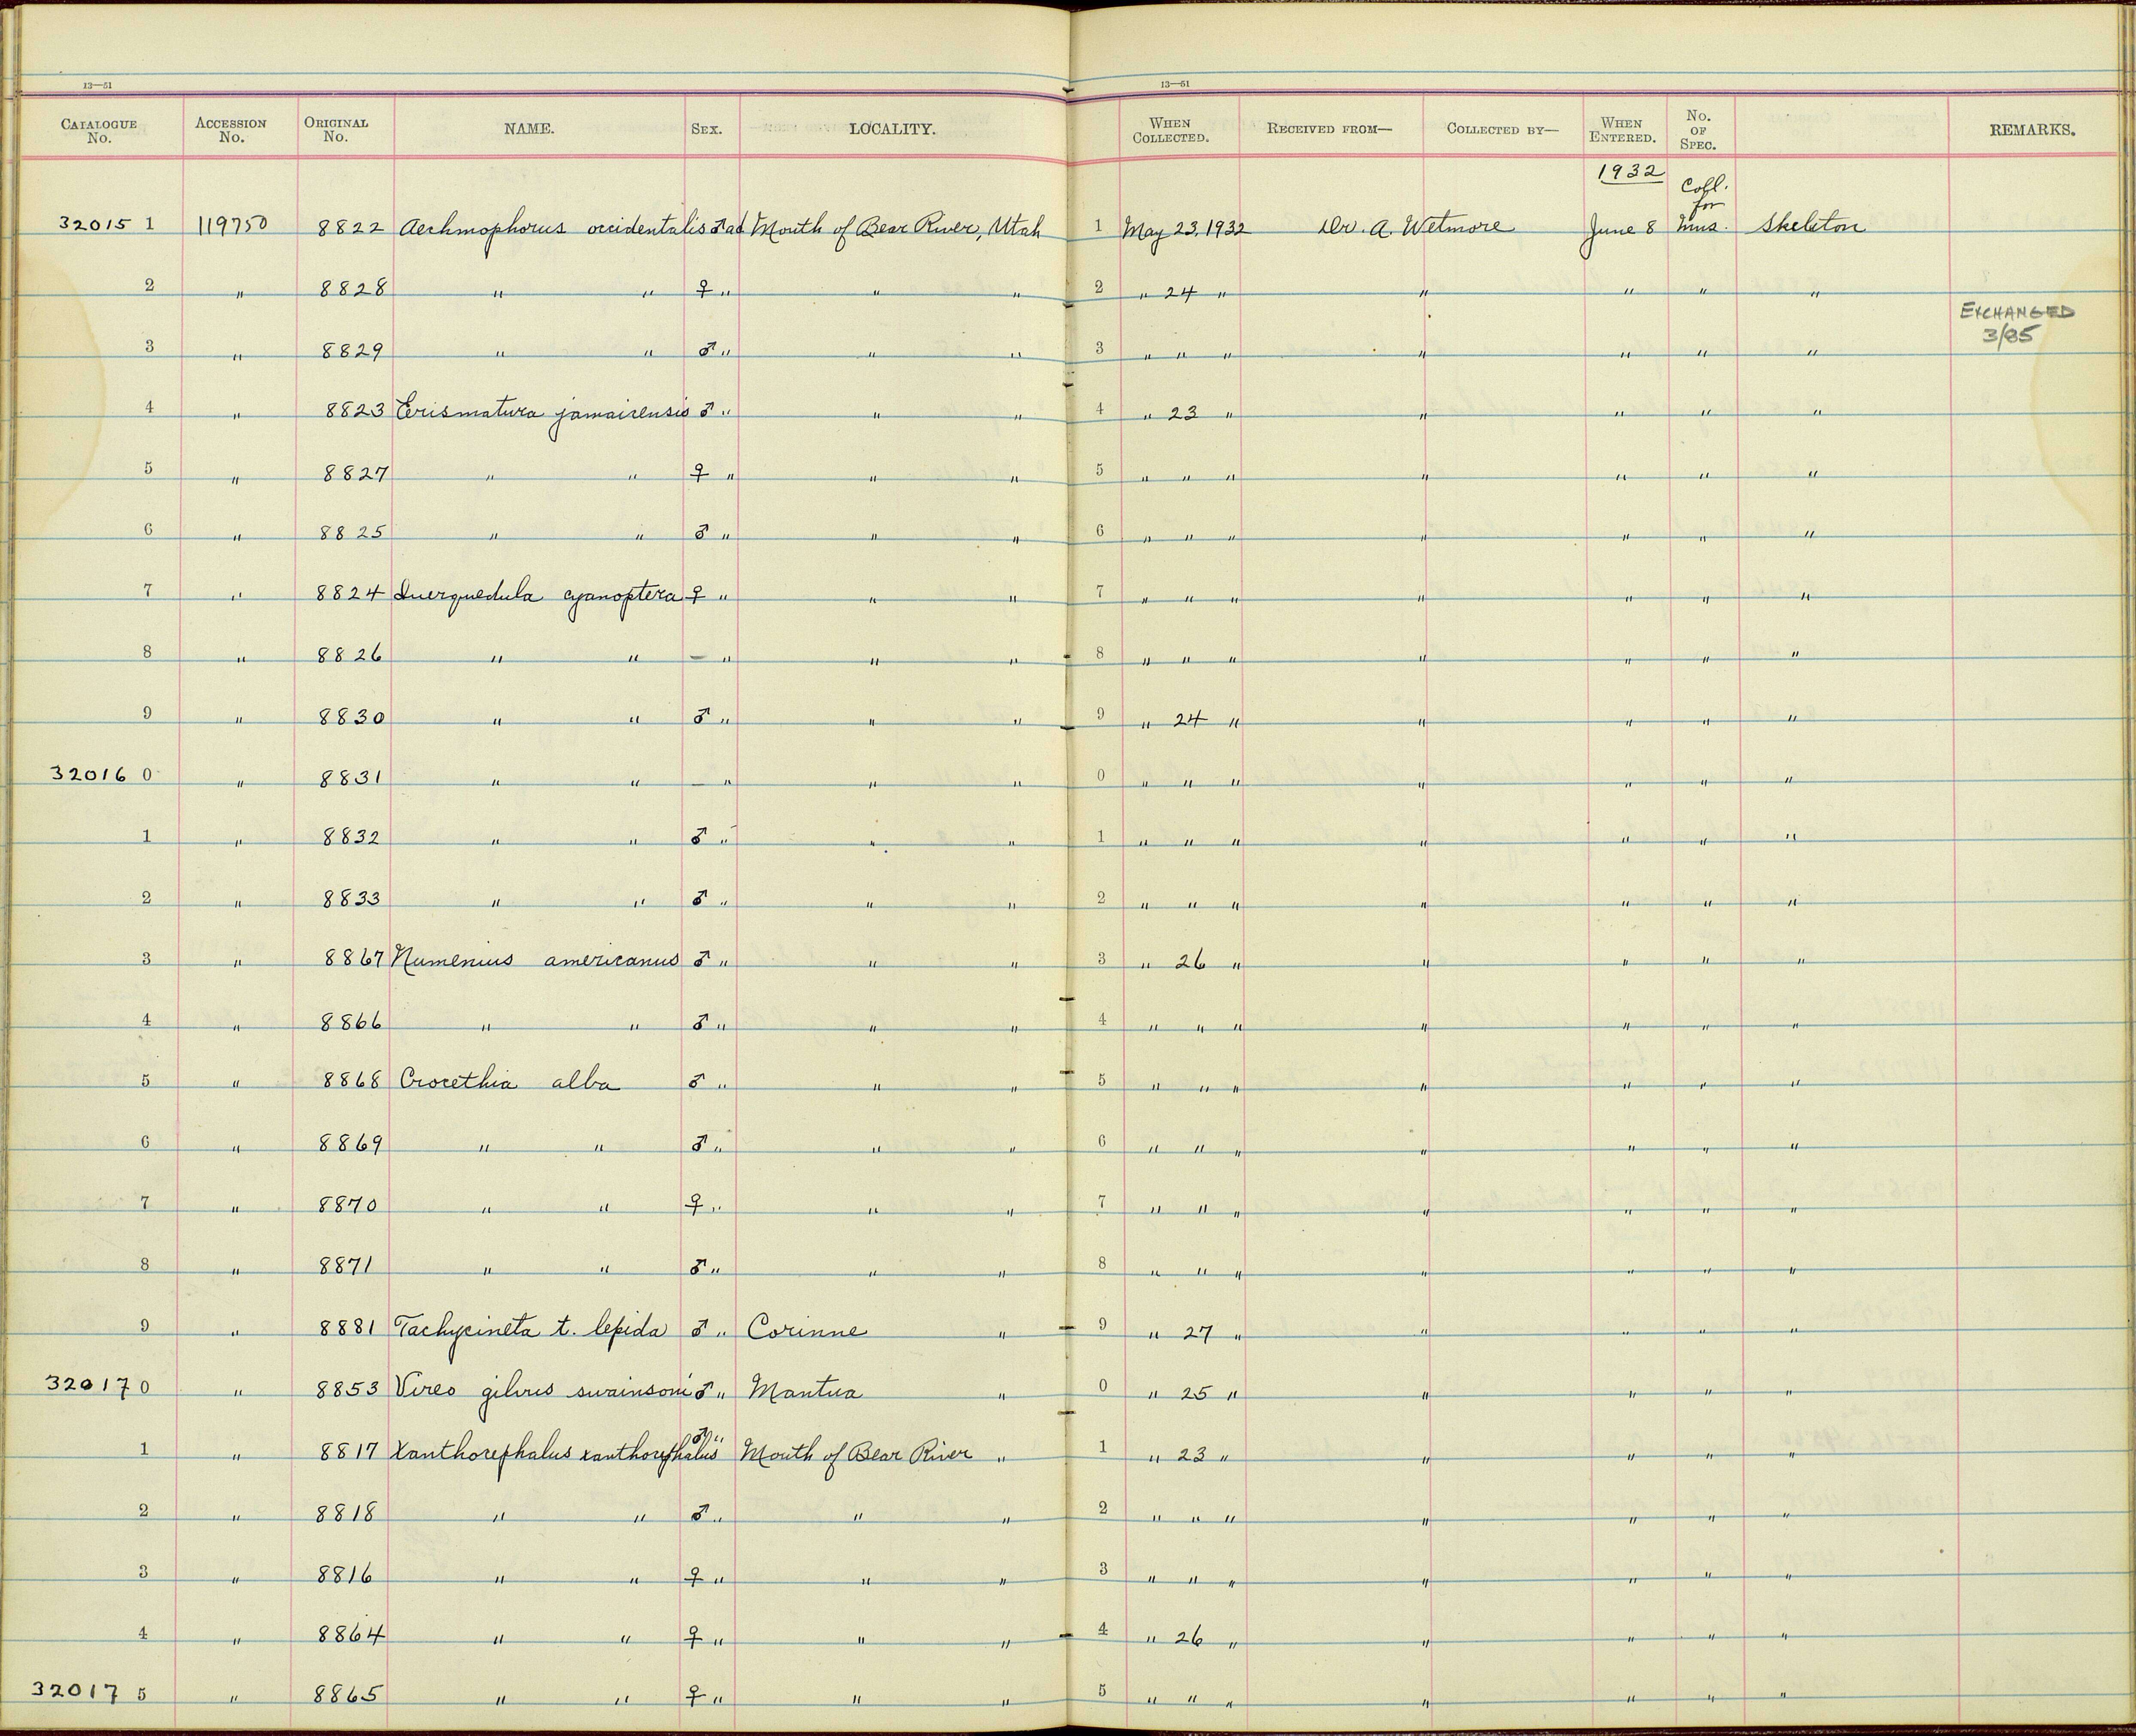 13—51 13—51
CATALOGUE No. ACCESSION No. ORIGINAL No. NAME. SEX. LOCALITY. WHEN COLLECTED. RECEIVED FROM— COLLECTED BY— WHEN ENTERED. No. OF SPEC. REMARKS.
1932
32015 1 119750 8822 Aechmophorus occidentalis ♂ ad Mouth of Bear River, Utah 1 May 23, 1932 Dr. A. Wetmore June 8 Coll. for Mus. Skeleton
2 " 8828 " " ♀ " " " 2 " 24 " " " " "
3 " 8829 " " ♂ " " " 3 " " " " " " " EXCHANGED 3/85
4 " 8823 Erismatura jamaicensis ♂ " " " 4 " 23 " " " " "
5 " 8827 " " ♀ " " " 5 " " " " " " "
6 " 8825 " " ♂ " " " 6 " " " " " " "
7 " 8824 Querquedula cyanoptera ♀ " " " 7 " " " " " " "
8 " 8826 " " — " " " 8 " " " " " " "
9 " 8830 " " ♂ " " " 9 " 24 " " " " "
32016 0 " 8831 " " — " " " 0 " " " " " " "
1 " 8832 " " ♂ " " " 1 " " " " " " "
2 " 8833 " " ♂ " " " 2 " " " " " " "
3 " 8867 Numenius americanus ♂ " " " 3 " 26 " " " " "
4 " 8866 " " ♂ " " " 4 " " " " " " "
5 " 8868 Crocethia alba ♂ " " " 5 " " " " " " "
6 " 8869 " " ♂ " " " 6 " " " " " " "
7 " 8870 " " ♀ " " " 7 " " " " " " "
8 " 8871 " " ♂ " " " 8 " " " " " " "
9 " 8881 Tachycineta t. lepida ♂ " Corinne " 9 " 27 " " " " "
32017 0 " 8853 Vireo gilvus swainsoni ♂ " Mantua " 0 " 25 " " " " "
1 " 8817 Xanthocephalus xanthocephalus ♂ " Mouth of Bear River " 1 " 23 " " " " "
2 " 8818 " " ♂ " " " 2 " " " " " " "
3 " 8816 " " ♀ " " " 3 " " " " " " "
4 " 8864 " " ♀ " " " 4 " 26 " " " " "
32017 5 " 8865 " " ♀ " " " 5 " " " " " " "